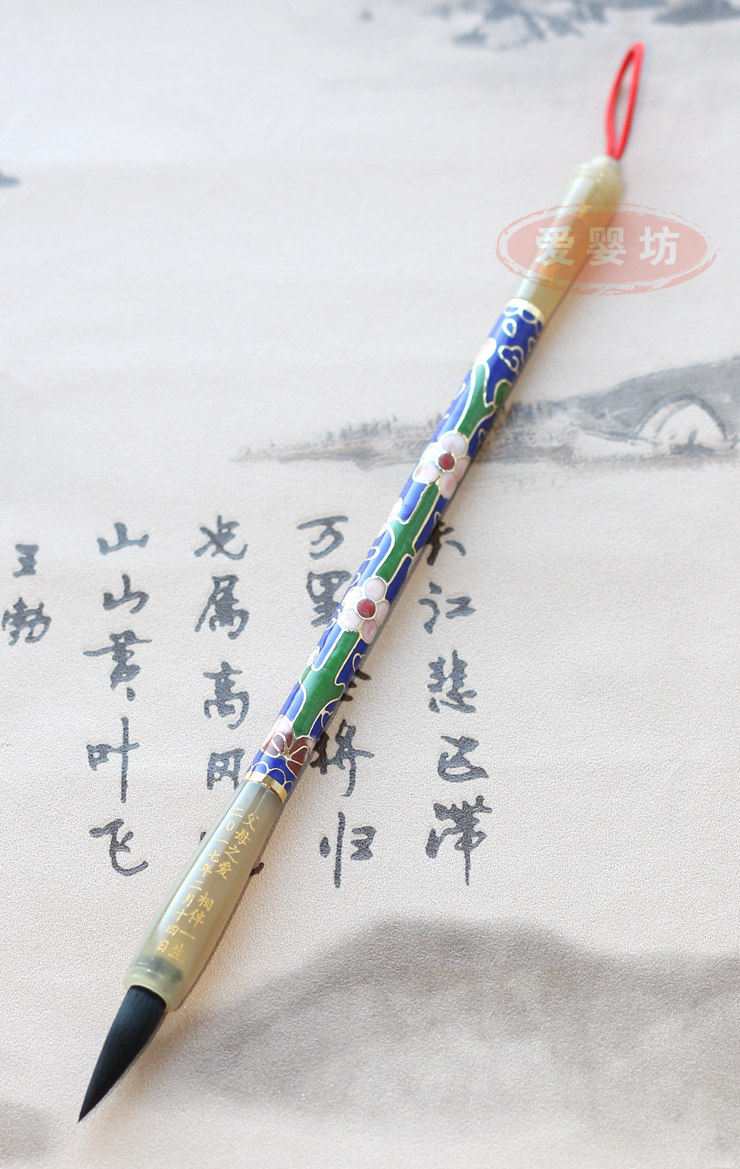 爱婴坊
长江悲已滞
万里将归
况属高风
山山黄叶飞
王勃
父母之爱 相伴一生
二0一七年二月十四日